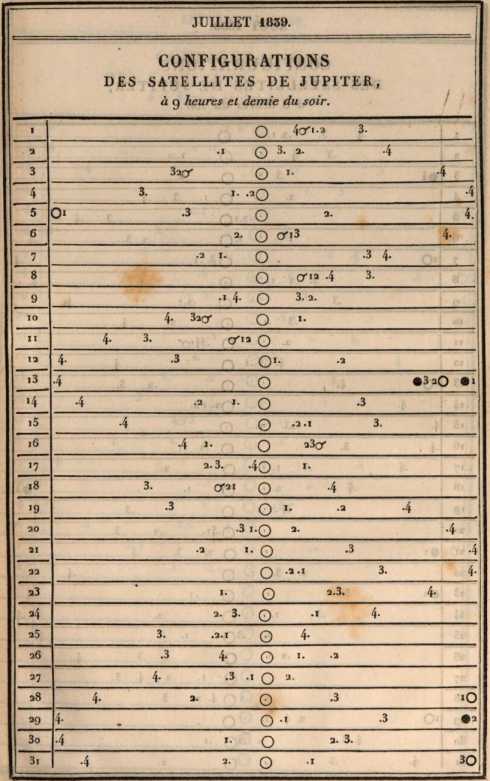 JUILLET 1839.
CONFIGURATIONS
DES SATELLITES DE JUPITER,
à 9 heures et demie du soir.
1 ○ 4☌1.2 3.
2 .1 ○ 3. 2. .4
3 32☌ ○ 1. .4
4 3. 1. .2○ .4
5 ○1 .3 ○ 2. 4.
6 2. ○ ☌13 4.
7 .2 1. ○ .3 4.
8 ○ ☌12 .4 3.
9 .1 4. ○ 3. 2.
10 4. 32☌ ○ 1.
11 4. 3. ☌12 ○
12 4. .3 ○1. .2
13 .4 ○ ●3 2○ ●1
14 .4 .2 1. ○ .3
15 .4 ○ .2 .1 3.
16 .4 1. ○ 23☌
17 2. 3. .4○ 1.
18 3. ☌21 ○ .4
19 .3 ○ 1. .2 .4
20 .3 1. ○ 2. .4
21 .2 1. ○ .3 .4
22 ○ .2 .1 3. 4.
23 1. ○ 2.3. 4.
24 2. 3. ○ .1 4.
25 3. .2.1 ○ 4.
26 .3 4. ○ 1. .2
27 4. .3 .1 ○ 2.
28 4. 2. ○ .3 1○
29 4. ○ .1 .3 ●2
30 .4 1. ○ 2. 3.
31 .4 2. ○ .1 3○